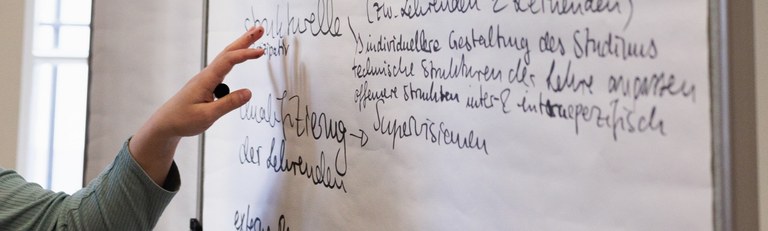 (zw. Lehrenden & Lernenden)
strukturelle
individuellere Gestaltung des Studiums
technische Strukturen der Lehre anpassen
offenere Strukturen inter- &
Qualifizierung → Supervisionen
der Lehrenden